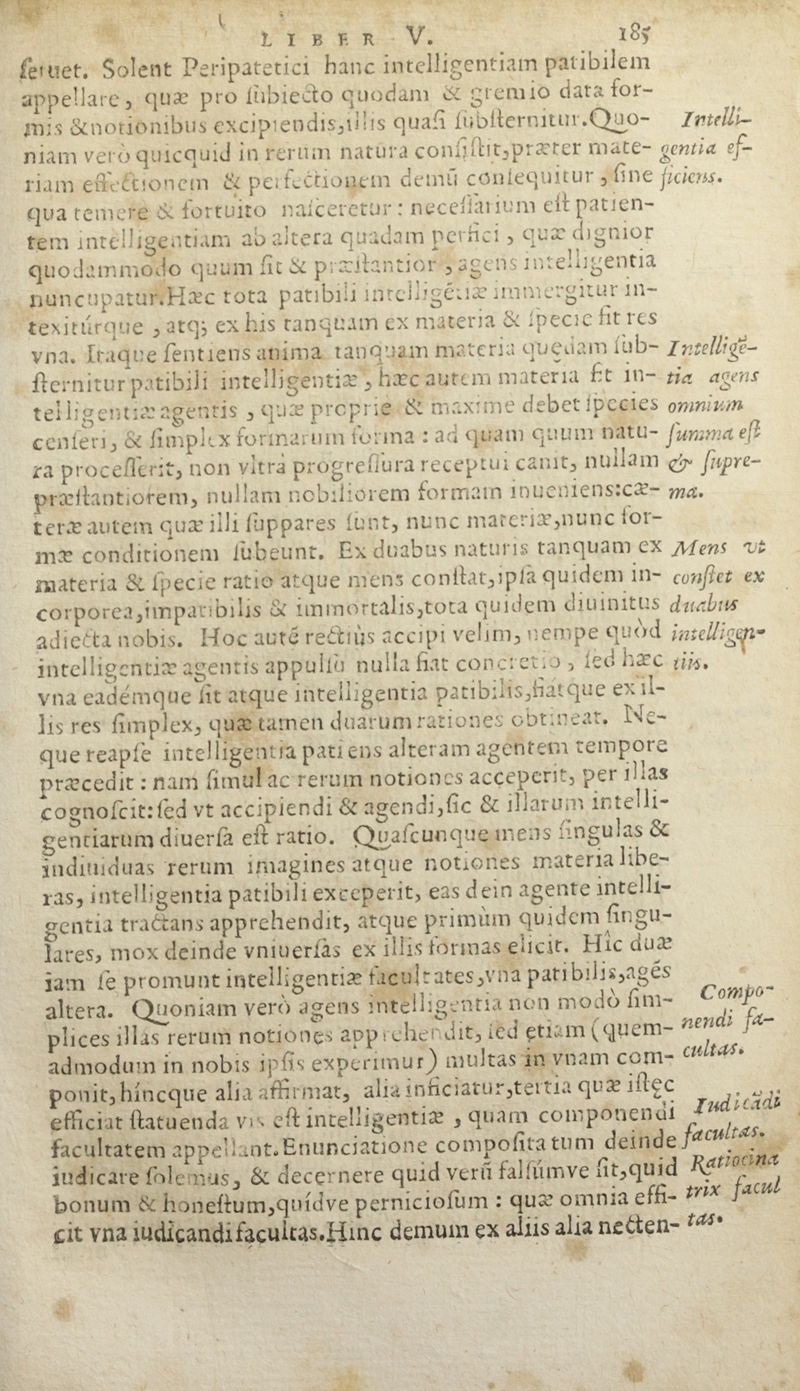 LIBER V. 185
seruet. Solent Peripatetici hanc intelligentiam patibilem
appellare, quæ pro subiecto quodam & gremio data for-
mis &notionibus excipiendis,illis quasi substernitur.Quo- Intelli-
niam verò quicquid in rerum natura consistit,præter mate- gentia ef-
riam effectionem & perfectionem demũ consequitur , sine ficiens.
qua temere & fortuito nasceretur : necessarium est patien-
tem intelligentiam ab altera quadam perfici , quæ dignior
quodammodo quum sit & præstantior , agens intelligentia
nuncupatur.Hæc tota patibili intelligẽtiæ immergitur in-
texitúrque , atq; ex his tanquam ex materia & specie fit res
vna. Itaque sentiens anima tanquam materia quędam sub- Intelligẽ-
sternitur patibili intelligentiæ , hæc autem materia fit in- tia agens
telligentiæ agentis , quæ proprie & maxime debet species omnium
censeri, & simplex formarum forma : ad quam quum natu- summa est
ra processerit, non vltrà progressura receptui canit, nullam & supre-
præstantiorem, nullam nobiliorem formam inueniens:cæ- ma.
teræ autem quæ illi suppares sunt, nunc materiæ,nunc for-
mæ conditionem subeunt. Ex duabus naturis tanquam ex Mens vt
materia & specie ratio atque mens constat,ipsa quidem in- constet ex
corporea,impatibilis & immortalis,tota quidem diuinitus duabus
adiecta nobis. Hoc autẽ rectiùs accipi velim, nempe quòd intelligen-
intelligentiæ agentis appulsu nulla fiat concretio , sed hæc tiis.
vna eadémque sit atque intelligentia patibilis,fiátque ex il-
lis res simplex, quæ tamen duarum rationes obtineat. Ne-
que reapse intelligentia patiens alteram agentem tempore
præcedit : nam simul ac rerum notiones acceperit, per illas
cognoscit:sed vt accipiendi & agendi,sic & illarum intelli-
gentiarum diuersa est ratio. Quascunque mens singulas &
indiuiduas rerum imagines atque notiones materia libe-
ras, intelligentia patibili exceperit, eas dein agente intelli-
gentia tractans apprehendit, atque primùm quidem singu-
lares, mox deinde vniuersas ex illis formas elicit. Hic duæ
iam se promunt intelligentiæ facultates,vna patibilis,agẽs
altera. Quoniam verò agens intelligentia non modò sim- Compo-
plices illas rerum notiones apprehendit, sed etiam (quem- nendi fa-
admodum in nobis ipsis experimur) multas in vnam com- cultas.
ponit,híncque alia affirmat, alia inficiatur,tertia quæ istęc
efficiat statuenda vis est intelligentiæ , quam componendi Iudicãdi
facultatem appellant.Enunciatione composita tum deinde facultas.
iudicare solemus, & decernere quid verũ falsúmve sit,quid Ratiocina
bonum & honestum,quídve perniciosum : quæ omnia effi- trix facul
cit vna iudicandi facultas.Hinc demum ex aliis alia necten- tas.